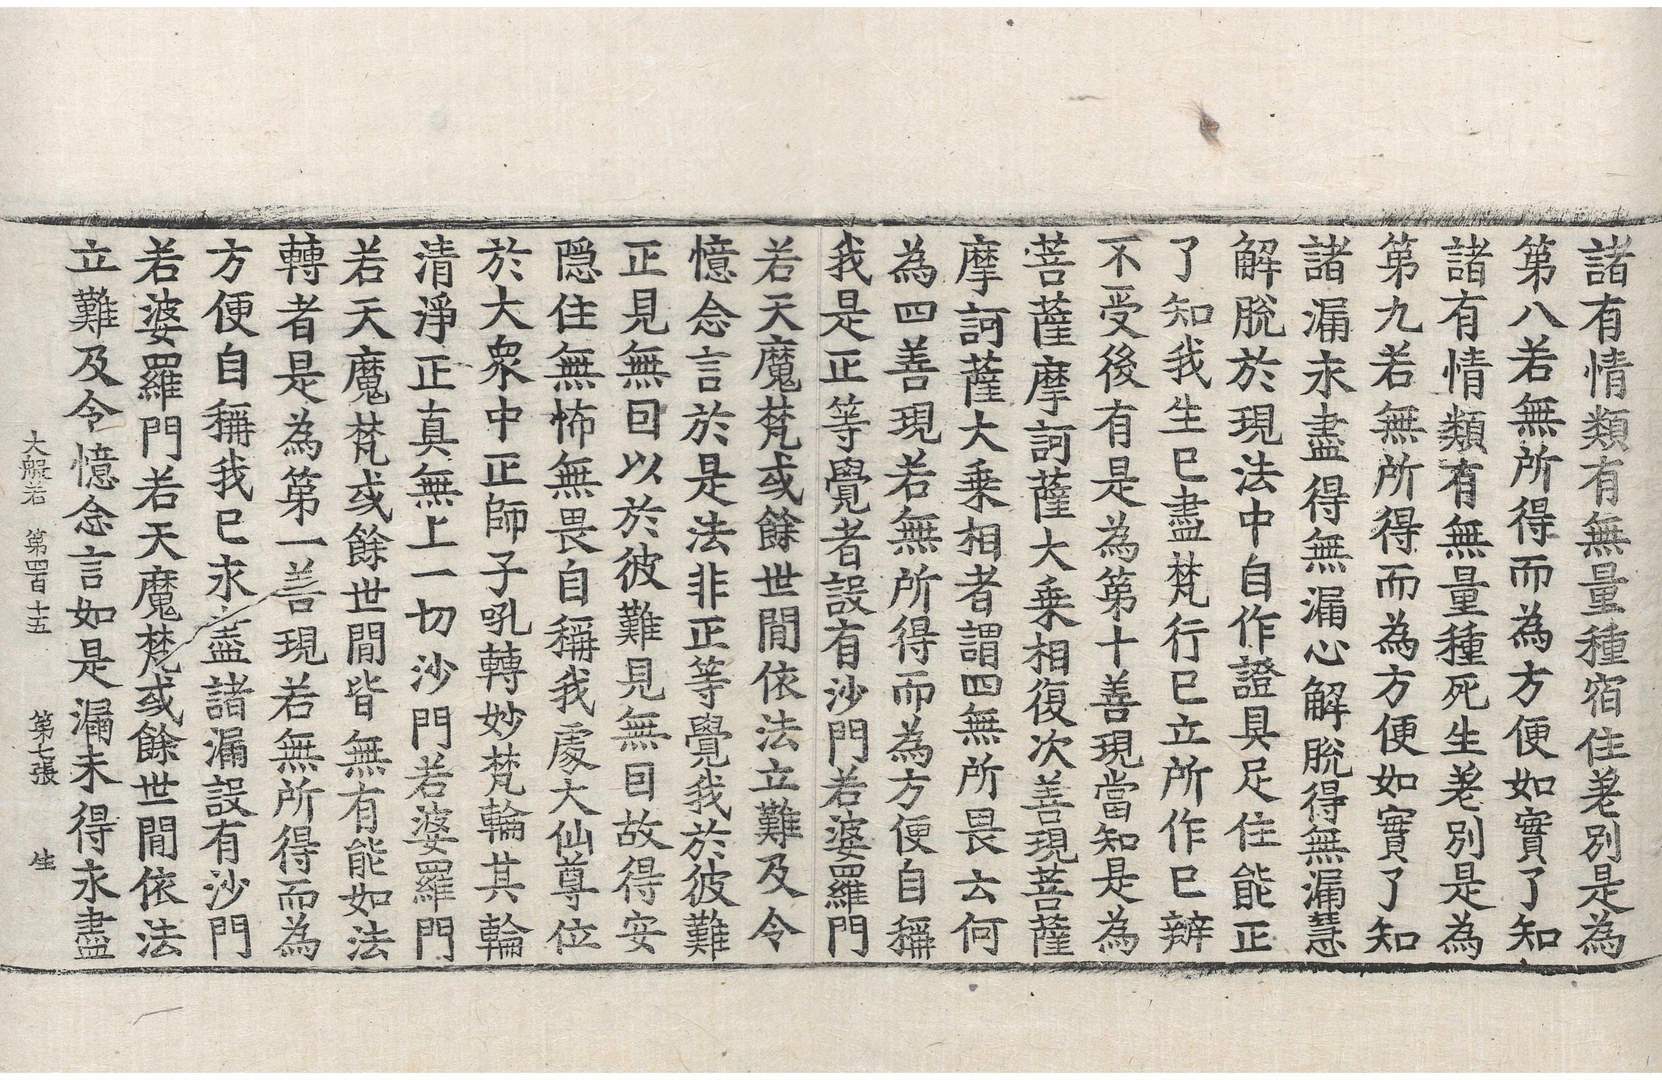 諸有情類有無量種宿住差別是為
第八若無所得而為方便如實了知
諸有情類有無量種死生差別是為
第九若無所得而為方便如實了知
諸漏永盡得無漏心解脫得無漏慧
解脫於現法中自作證具足住能正
了知我生已盡梵行已立所作已辦
不受後有是為第十善現當知是為
菩薩摩訶薩大乘相復次善現菩薩
摩訶薩大乘相者謂四無所畏云何
為四善現若無所得而為方便自稱
我是正等覺者設有沙門若婆羅門
若天魔梵或餘世間依法立難及令
憶念言於是法非正等覺我於彼難
正見無因以於彼難見無因故得安
隱住無怖無畏自稱我處大仙尊位
於大眾中正師子吼轉妙梵輪其輪
清淨正真無上一切沙門若婆羅門
若天魔梵或餘世間皆無有能如法
轉者是為第一善現若無所得而為
方便自稱我已永盡諸漏設有沙門
若婆羅門若天魔梵或餘世間依法
立難及令憶念言如是漏未得永盡
大般若 第四百十五 第七張 生